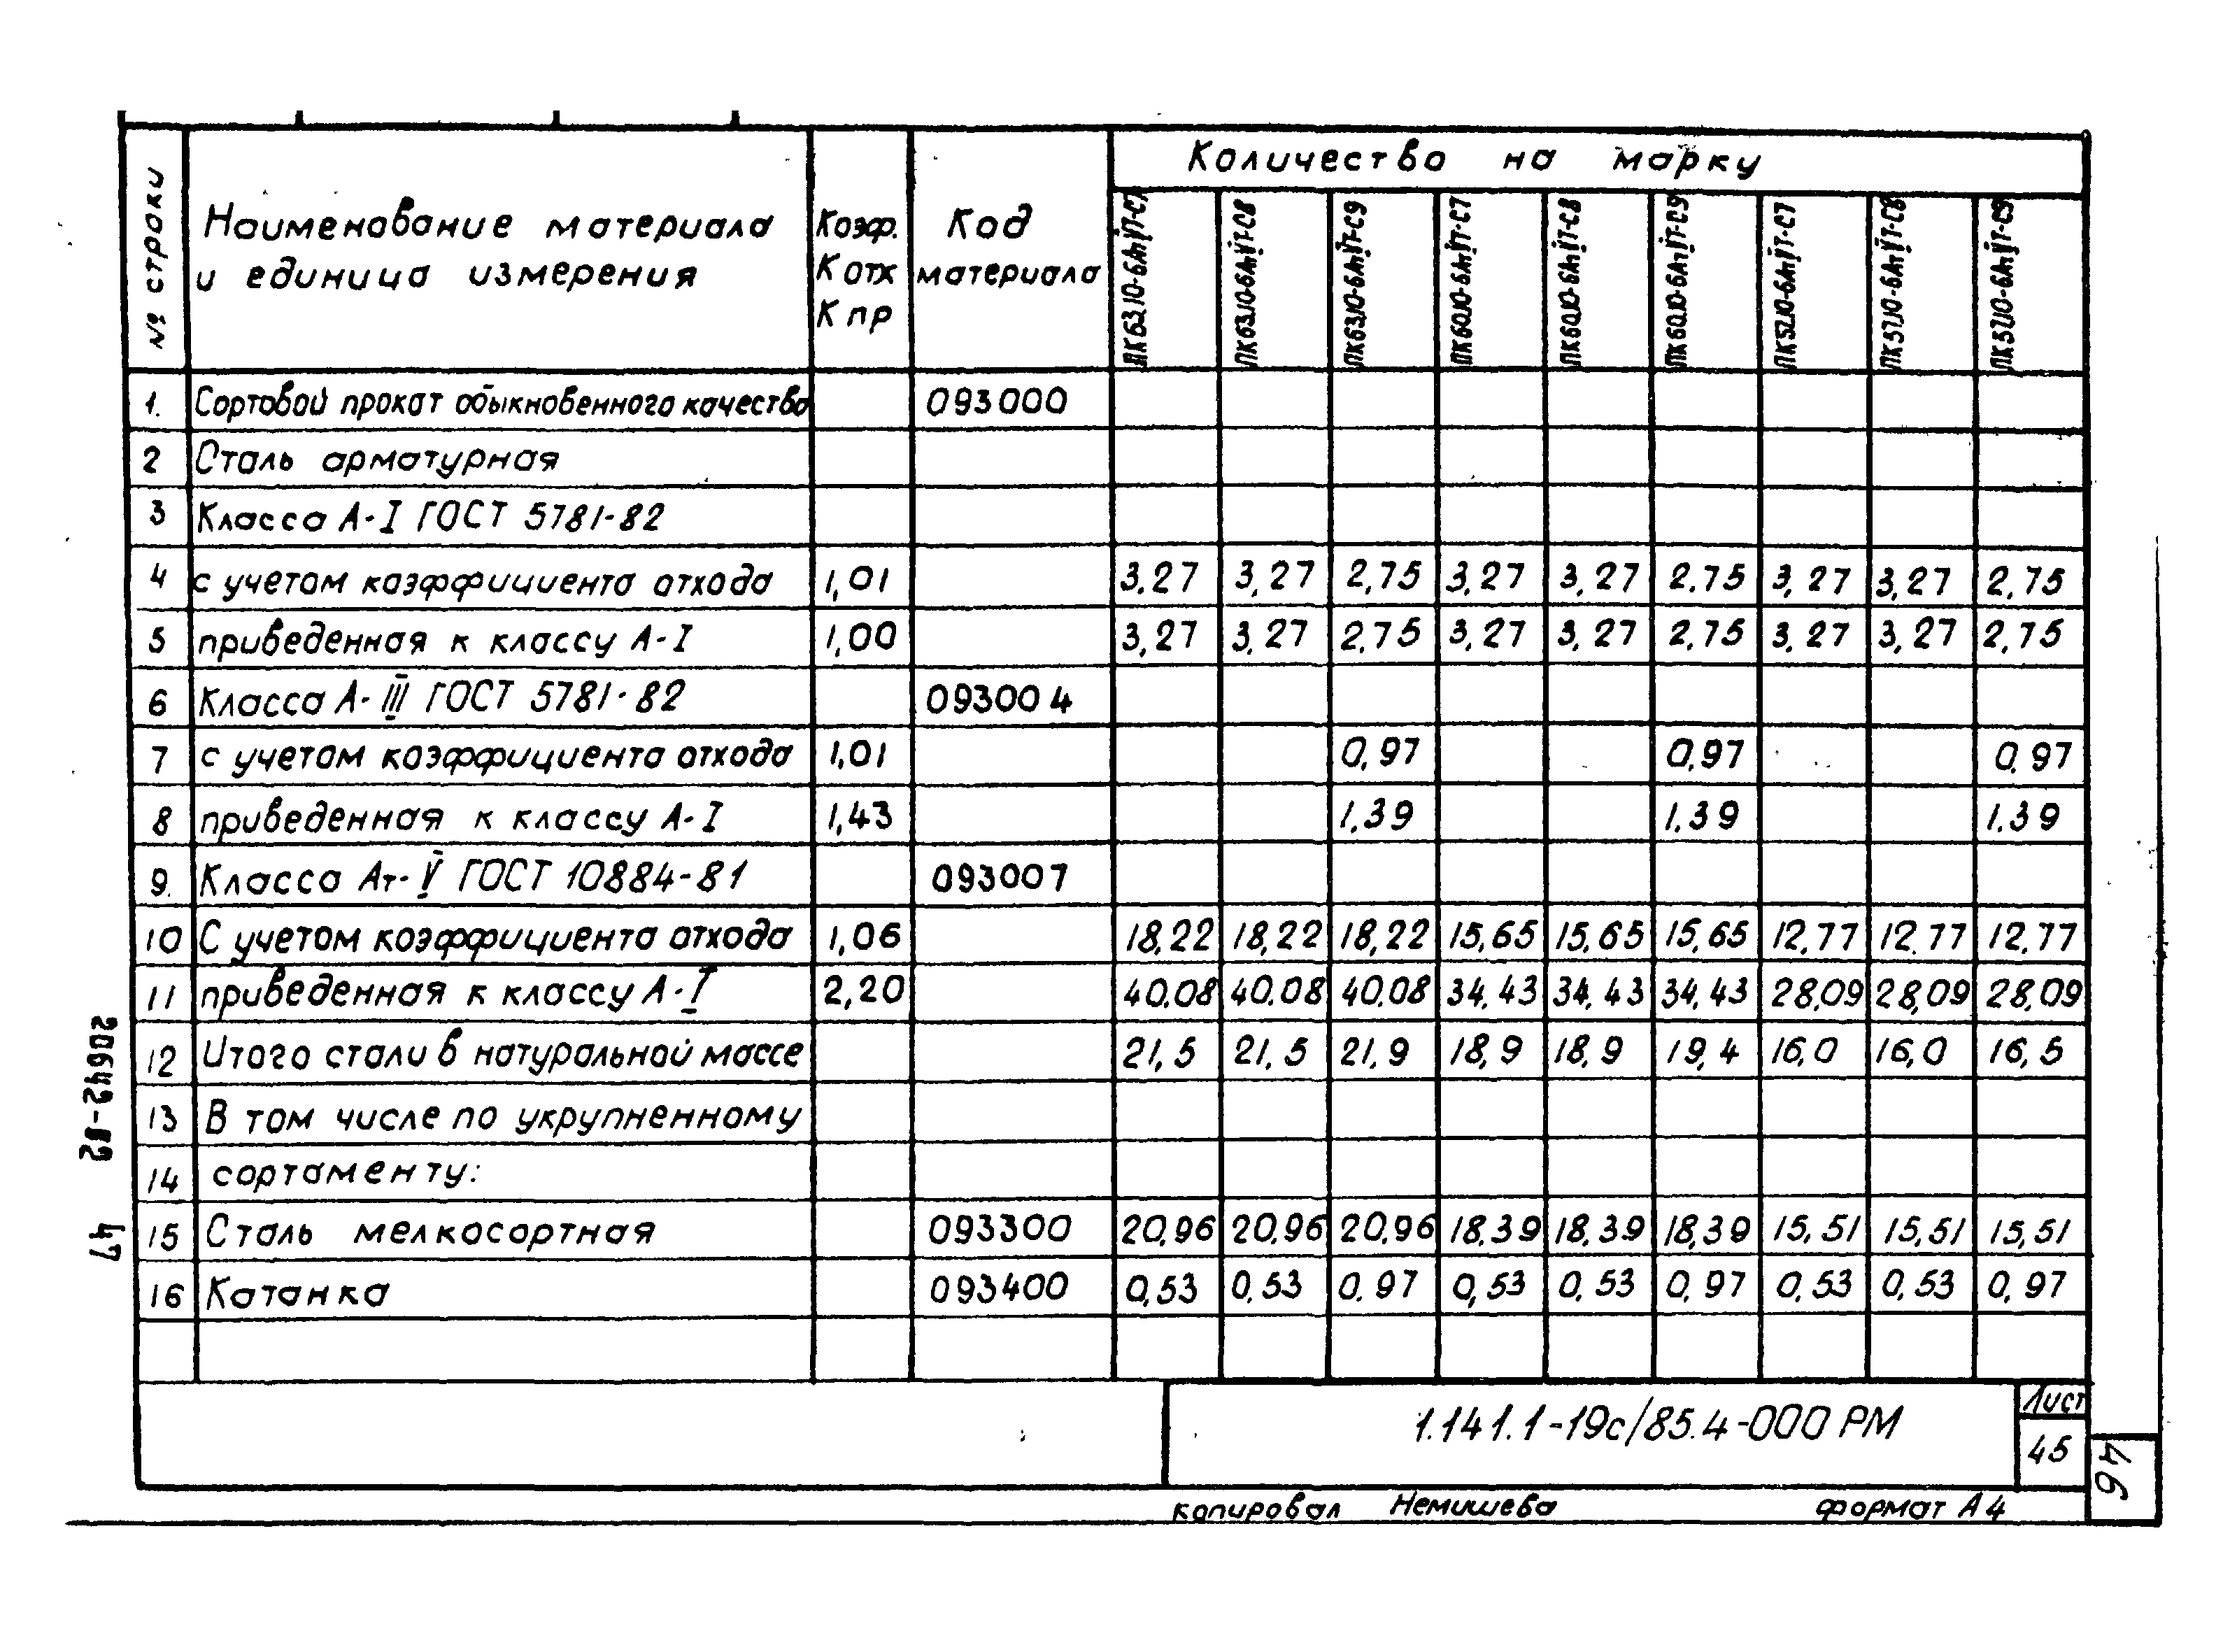 № строки
Наименование материала
и единица измерения
Коэф.
К отх
К пр
Код
материала
Количество на марку
ПК63.10-6АтVТ-С7 ПК63.10-6АтVТ-С8 ПК63.10-6АтVТ-С9 ПК60.10-6АтVТ-С7 ПК60.10-6АтVТ-С8 ПК60.10-6АтVТ-С9 ПК57.10-6АтVТ-С7 ПК57.10-6АтVТ-С8 ПК57.10-6АтVТ-С9
1. Сортовой прокат обыкновенного качества 093000
2 Сталь арматурная
3 Класса А-I ГОСТ 5781-82
4 с учетом коэффициента отхода 1,01 3,27 3,27 2,75 3,27 3,27 2.75 3,27 3,27 2,75
5 приведенная к классу А-I 1,00 3,27 3,27 2,75 3,27 3,27 2,75 3,27 3,27 2,75
6 Класса А-III ГОСТ 5781-82 093004
7 с учетом коэффициента отхода 1,01 0,97 0,97 0,97
8 приведенная к классу А-I 1,43 1,39 1,39 1.39
9. Класса Ат-V ГОСТ 10884-81 093007
10 С учетом коэффициента отхода 1,06 18,22 18,22 18,22 15,65 15,65 15,65 12,77 12.77 12,77
11 приведенная к классу А-I 2,20 40.08 40.08 40.08 34,43 34,43 34,43 28,09 28,09 28,09
12 Итого стали в натуральной массе 21,5 21,5 21,9 18,9 18,9 19,4 16,0 16,0 16,5
13 В том числе по укрупненному
14 сортаменту:
15 Сталь мелкосортная 093300 20,96 20,96 20,96 18.39 18.39 18,39 15,51 15,51 15,51
16 Катанка 093400 0,53 0,53 0,97 0,53 0,53 0,97 0,53 0,53 0,97
1.141.1-19с/85.4-000 РМ
Лист
45
копировал Немишева формат А4
46
47